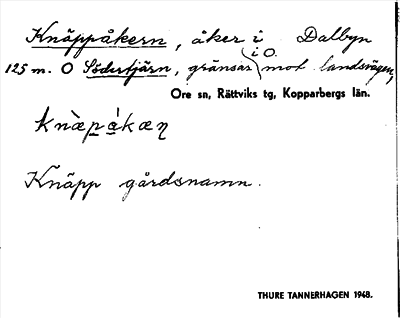 Knäppåkern, åker i Dalbyn
125 m. O Södertjärn, gränsar i O. mot landsvägen,
Ore sn, Rättviks tg, Kopparbergs län.
knæ̀pa̠̍kæꞃ
Knäpp gårdsnamn.
THURE TANNERHAGEN 1948.